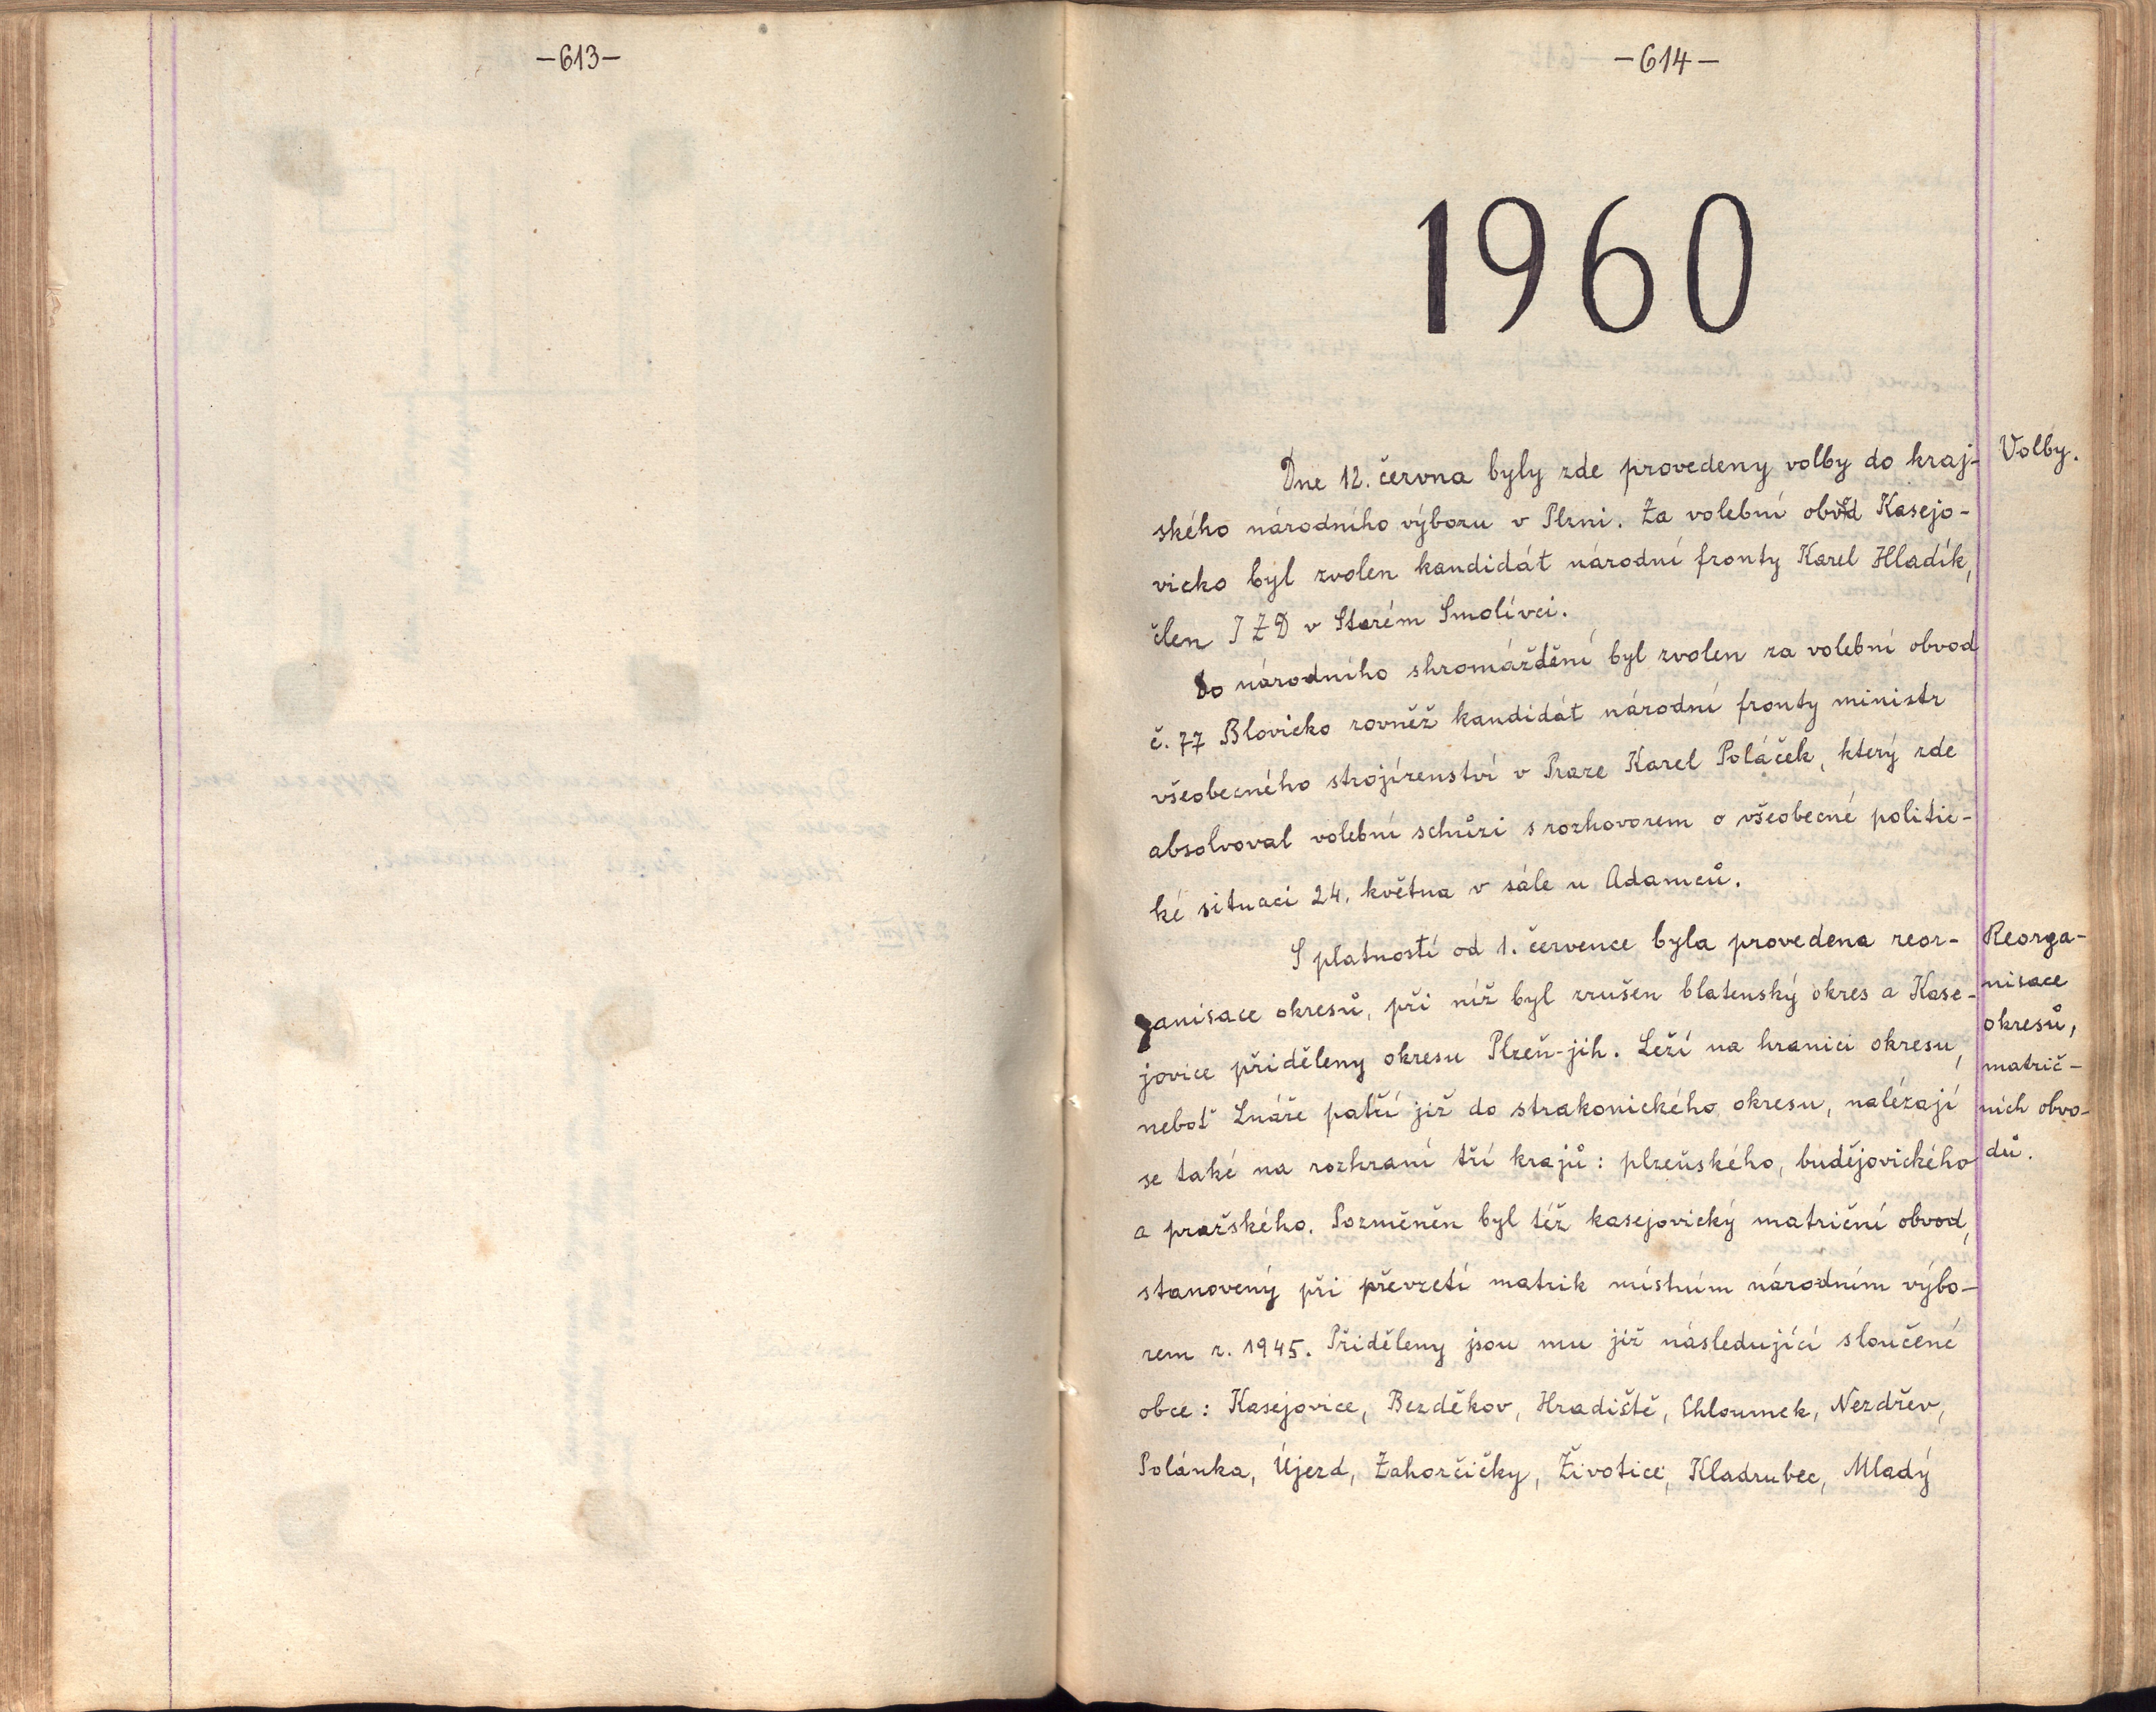 -613-
-614-
1960
Dne 12. června byly zde provedeny volby do kraj-
ského národního výboru v Plzni. Za volební obvod Kasejo-
vicko byl zvolen kandidát národní fronty Karel Hladík,
člen JZD v Starém Smolívci.
Do národního shromáždění byl zvolen za volební obvod
č. 77 Blovicko rovněž kandidát národní fronty ministr
všeobecného strojírenství v Praze Karel Poláček, který zde
absolvoval volební schůzi s rozhovorem o všeobecné politic-
ké situaci 24. května v sále u Adamců.
S platností od 1. července byla provedena reor-
ganisace okresů, při níž byl zrušen blatenský okres a Kase-
jovice přiděleny okresu Plzeň-jih. Leží na hranici okresu,
neboť Lnáře patří již do strakonického okresu, nalézají
se také na rozhraní tří krajů: plzeňského, budějovického
a pražského. Pozměněn byl též kasejovický matriční obvod,
stanovený při převzetí matrik místním národním výbo-
rem r. 1945. Přiděleny jsou mu již následující sloučené
obce: Kasejovice, Bezděkov, Hradiště, Chloumek, Nezdřev,
Polánka, Újezd, Zahorčičky, Životice, Kladrubec, Mladý
Volby.
Reorga-
nisace
okresů,
matrič-
ních obvo-
dů.